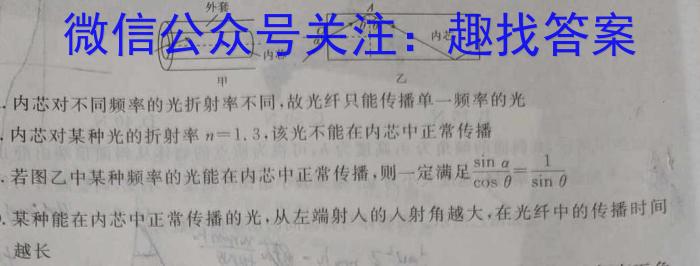 外套
A
微信公众号关注：趣找答案
内芯
内芯
甲
乙
.内芯对不同频率的光折射率不同,故光纤只能传播单一频率的光
.内芯对某种光的折射率 n=1.3,该光不能在内芯中正常传播
.若图乙中某种频率的光能在内芯中正常传播,则一定满足 sin α/cos θ = 1/sin θ
.某种能在内芯中正常传播的光,从左端射人的人射角越大,在光纤中的传播时间
越长